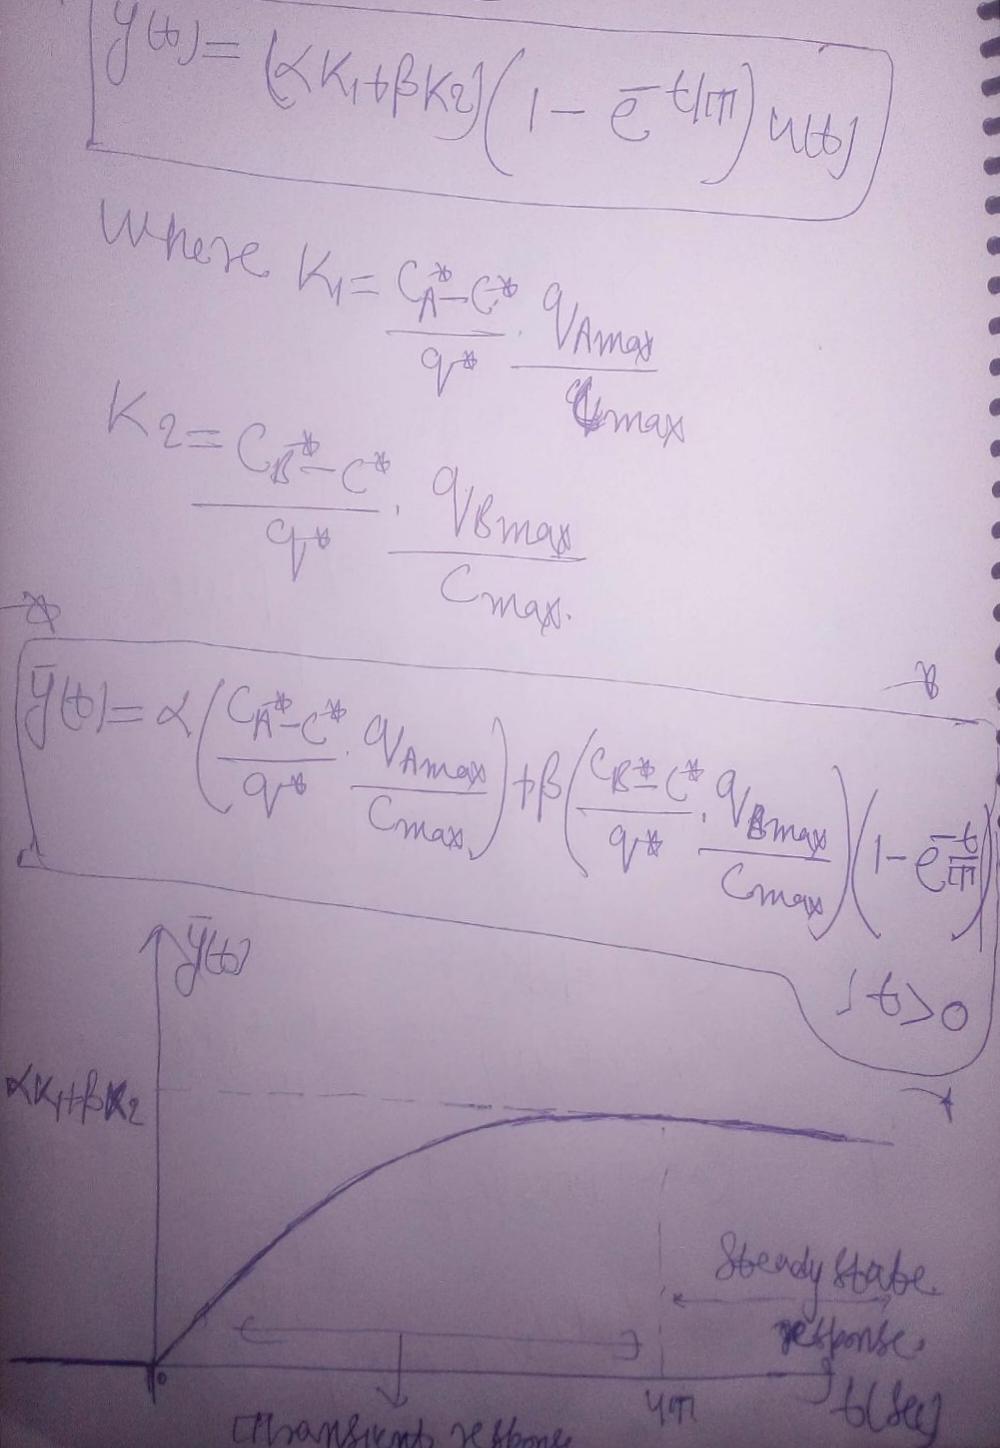 ȳ(t) = (αK₁+βK₂)(1 - e^(-t/τ)) u(t)
where K₁ = (C_A* - C*)/q* · q_Amax/C_max
K₂ = (C_B* - C*)/q* · q_Bmax/C_max.
ȳ(t) = α((C_A* - C*)/q* · q_Amax/C_max) + β((C_B* - C*)/q* · q_Bmax/C_max)(1 - e^(-t/τ))
, t>0
ȳ(t)
αK₁+βK₂
Steady state
response.
0
4τ
t(sec)
Transient response